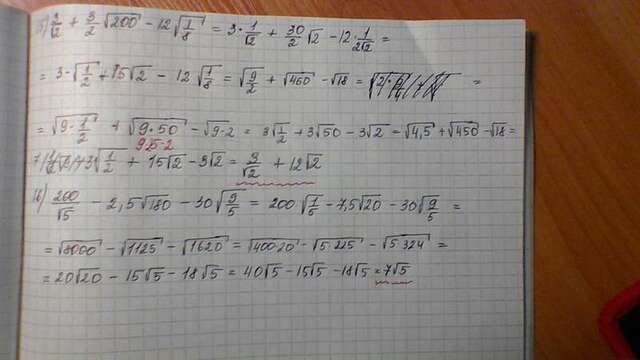 5) 3/√2 + 3/2 √200 - 12√1/8 = 3·1/√2 + 30/2 √2 - 12·1/2√2 =
= 3·√1/2 + 15√2 - 12√1/8 = √9/2 + √450 - √18 = =
= √9·1/2 + √9·50 - √9·2 = 3√1/2 + 3√50 - 3√2 = √4,5 + √450 - √18 =
9·5·2
3√1/2 + 15√2 - 3√2 = 3/√2 + 12√2
16) 200/√5 - 2,5√180 - 30√9/5 = 200√1/5 - 7,5√20 - 30√9/5 =
= √8000 - √1125 - √1620 = √400·20 - √5·225 - √5·324 =
= 20√20 - 15√5 - 18√5 = 40√5 - 15√5 - 18√5 = 7√5